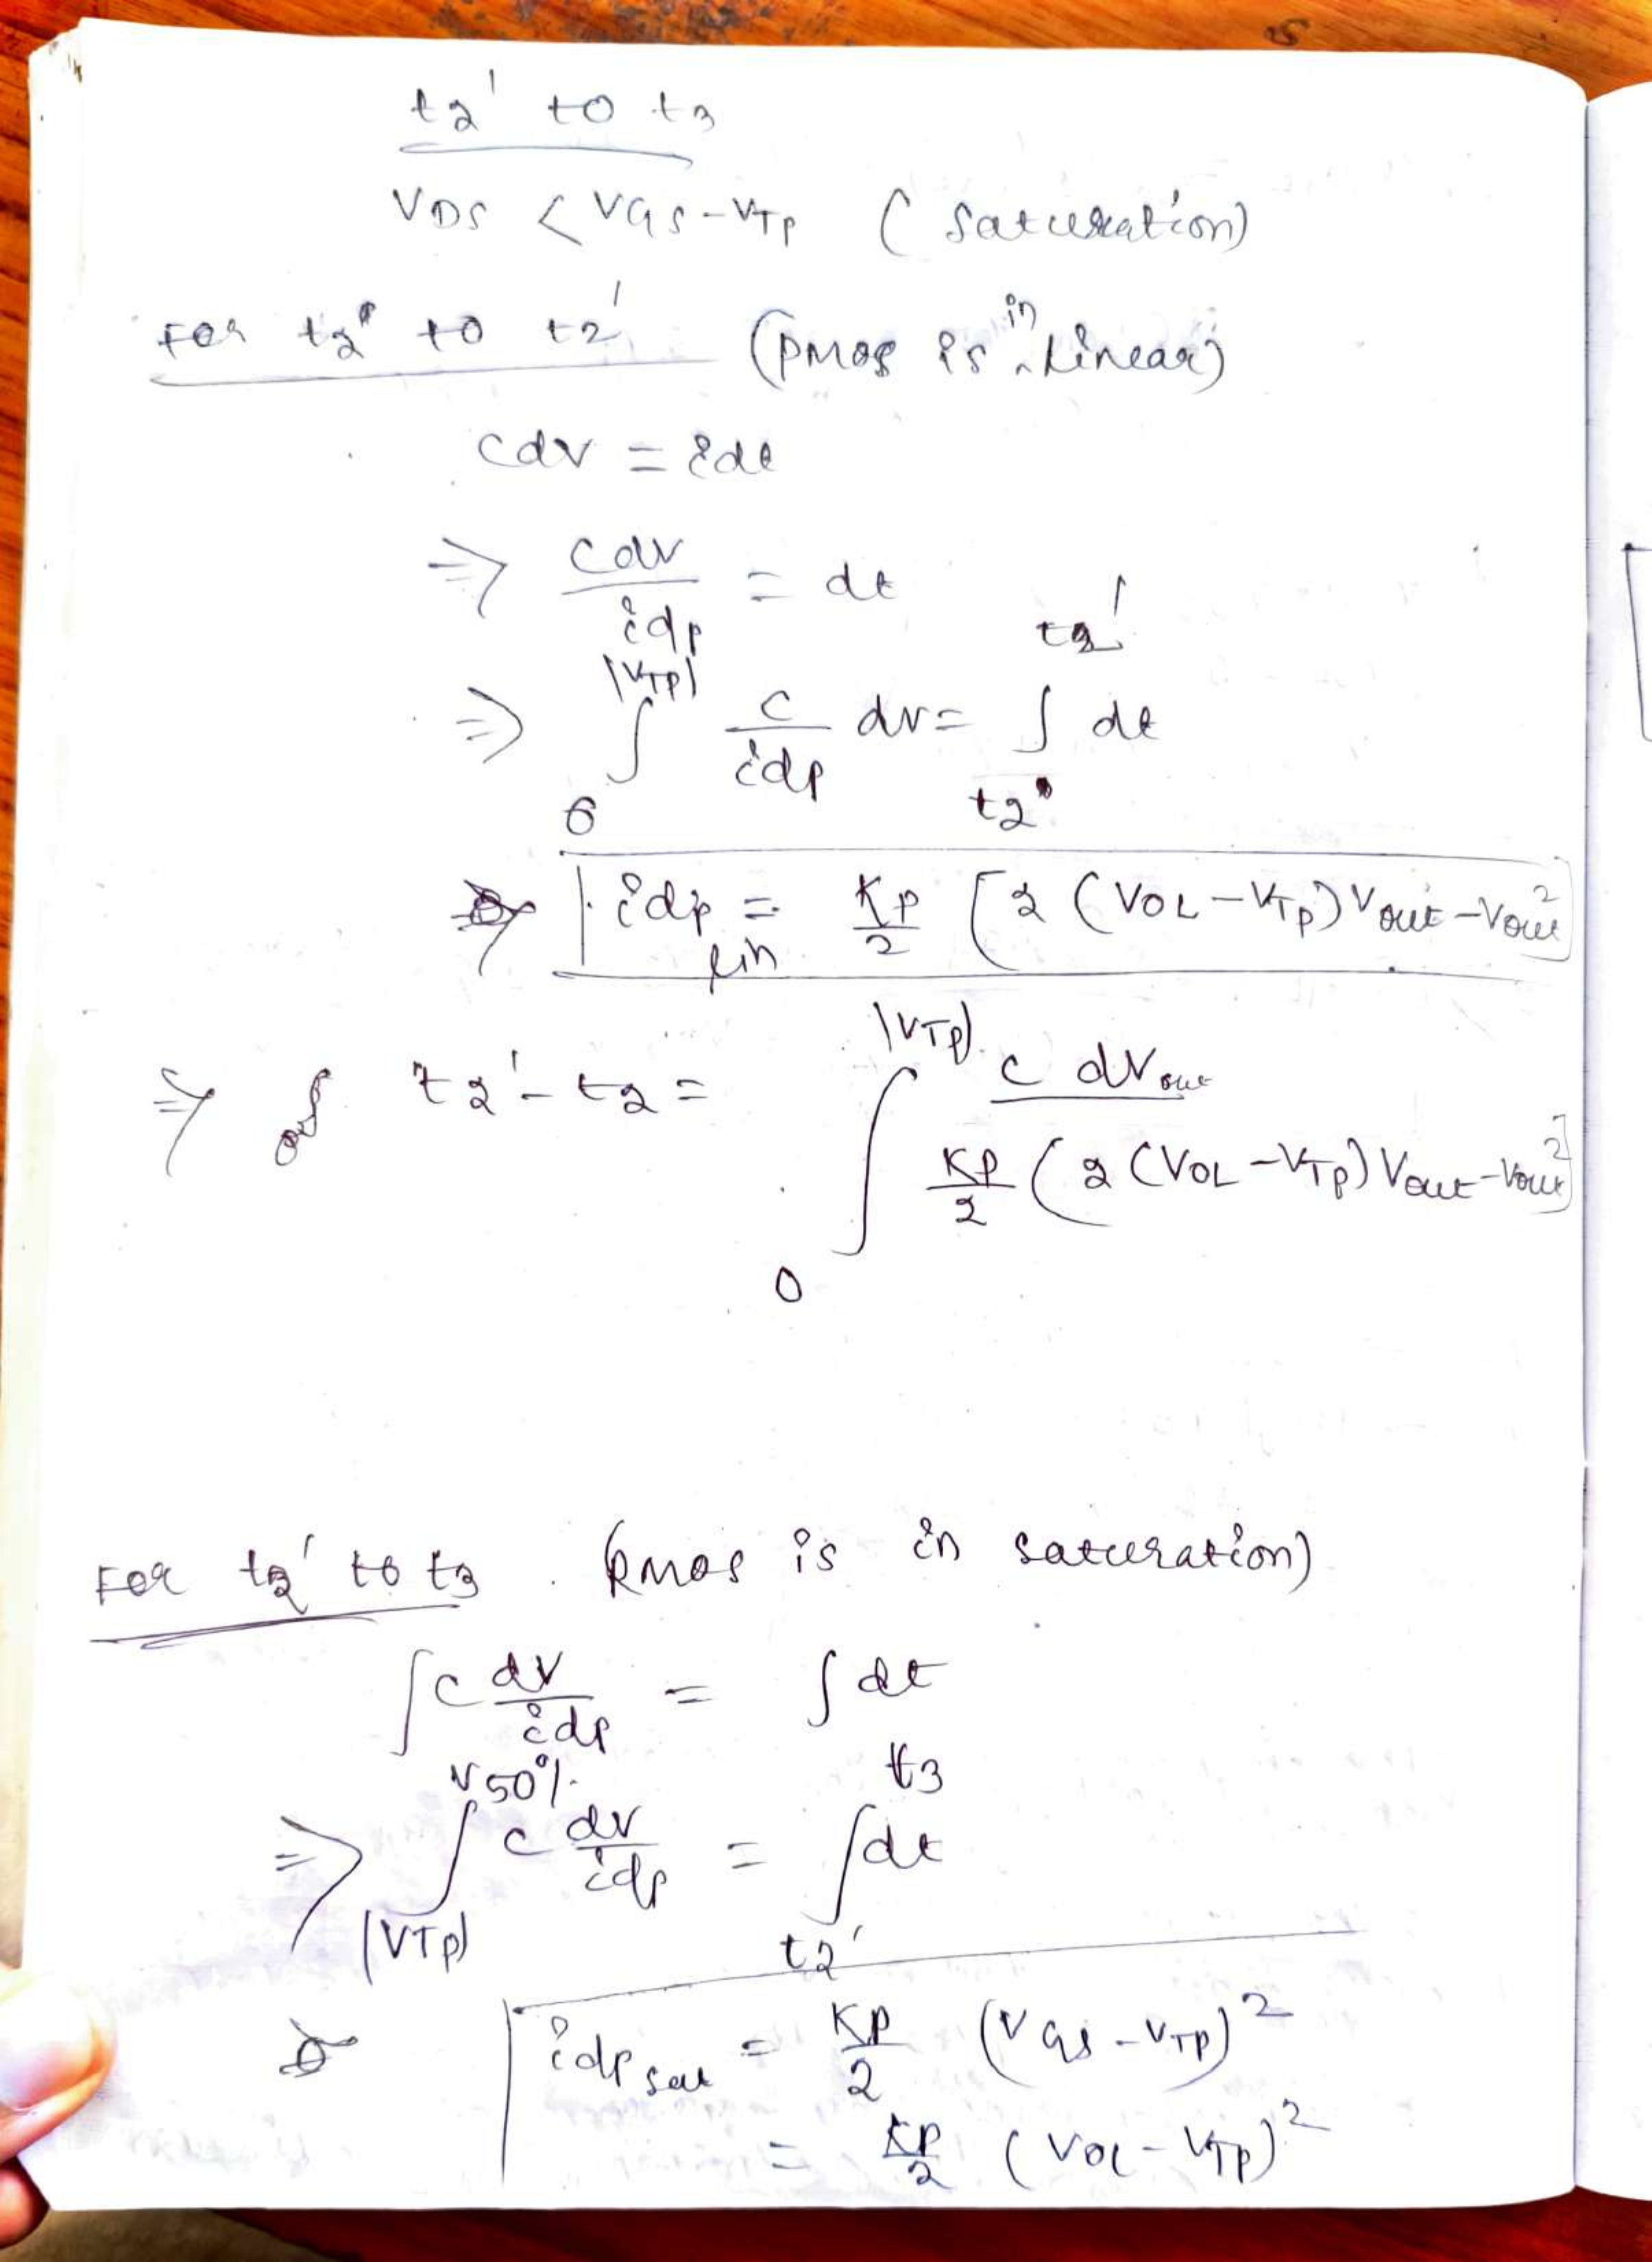 t2' to t3
VDS < VGS-VTp (Saturation)
For t2 to t2' (pmos is in Linear)
Cdv = idt
⇒ Cdv/idp = dt
⇒ ∫_0^|VTp| C/idp dv = ∫_t2^t2' dt
⇒ idp lin = Kp/2 [2 (VOL-VTp) Vout - Vout²]
⇒ t2' - t2 = ∫_0^|VTp| C dVout / Kp/2 (2 (VOL-VTp) Vout - Vout²]
For t2' to t3 (pmos is in saturation)
∫ C dv/idp = ∫ dt
⇒ ∫_|VTp|^V50% C dv/idp = ∫_t2'^t3 dt
idp sat = Kp/2 (VGS-VTP)²
= Kp/2 (VOL-VTp)²